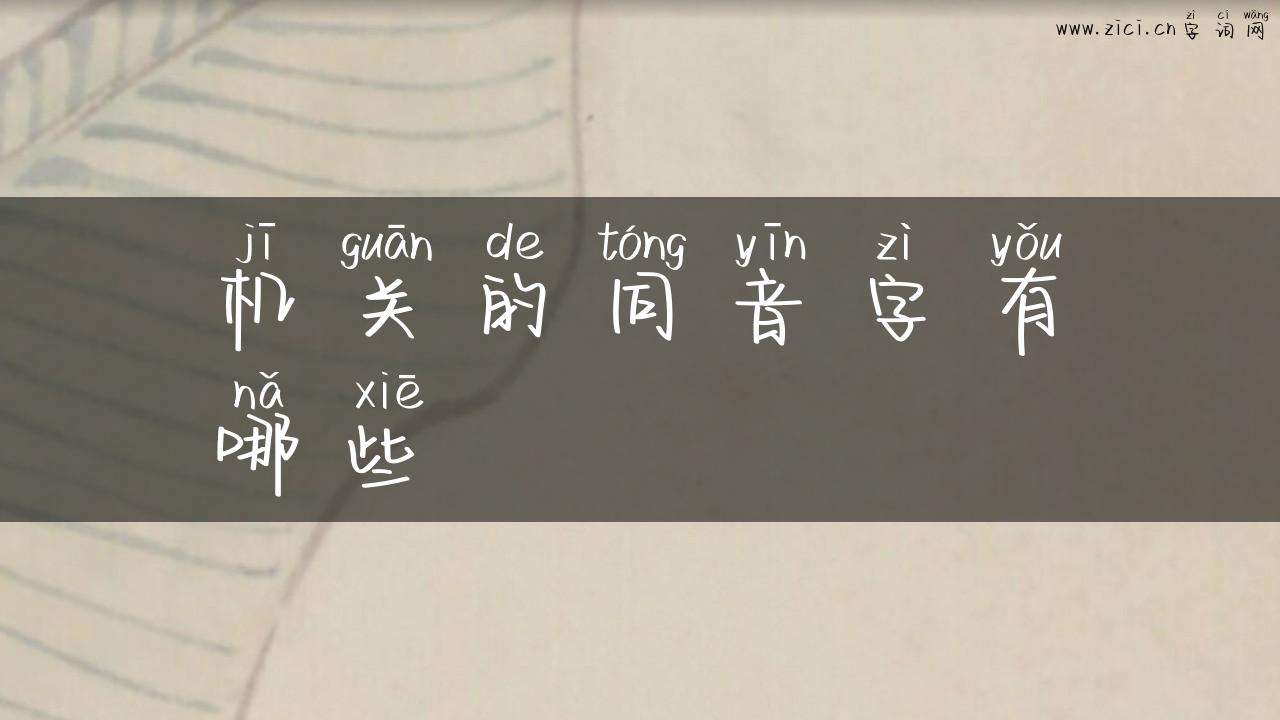 zì cí wǎng
www.zici.cn 字 词 网
jī guān de tóng yīn zì yǒu
机 关 的 同 音 字 有
nǎ xiē
哪 些